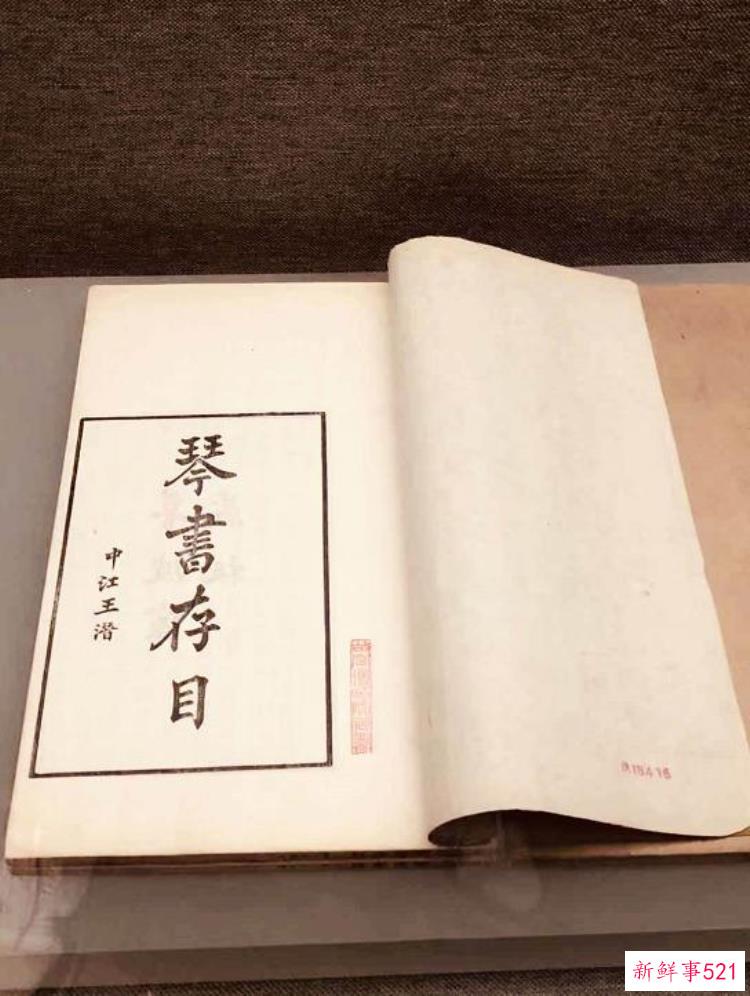 琴書存目
中江王潛
新鲜事521